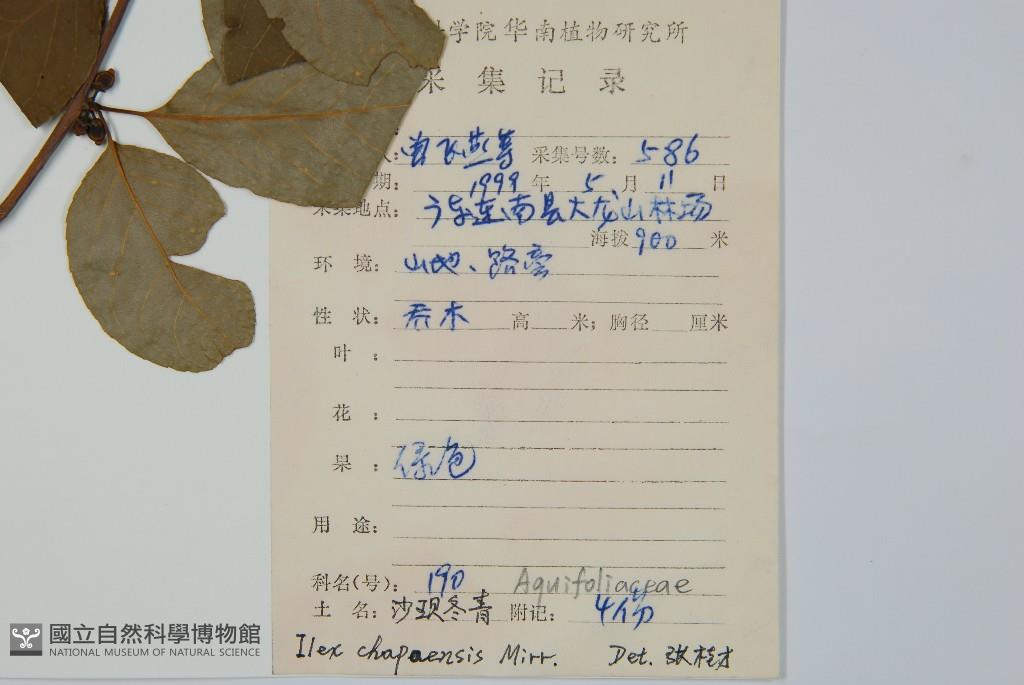 学院华南植物研究所
采集记录
人: 曾飞燕等 采集号数: 586
期: 1999 年 5 月 11 日
采集地点: 广东东南县大龙山林场
海拨 900 米
环 境: 山地、路旁
性 状: 乔木 高 米; 胸径 厘米
叶 :
花 :
果 : 绿色
用 途:
科名(号): 190 Aquifoliaceae
土 名: 沙坝冬青 附记: 4份
Ilex chapaensis Mirr. Det. 张桂才
國立自然科學博物館
NATIONAL MUSEUM OF NATURAL SCIENCE